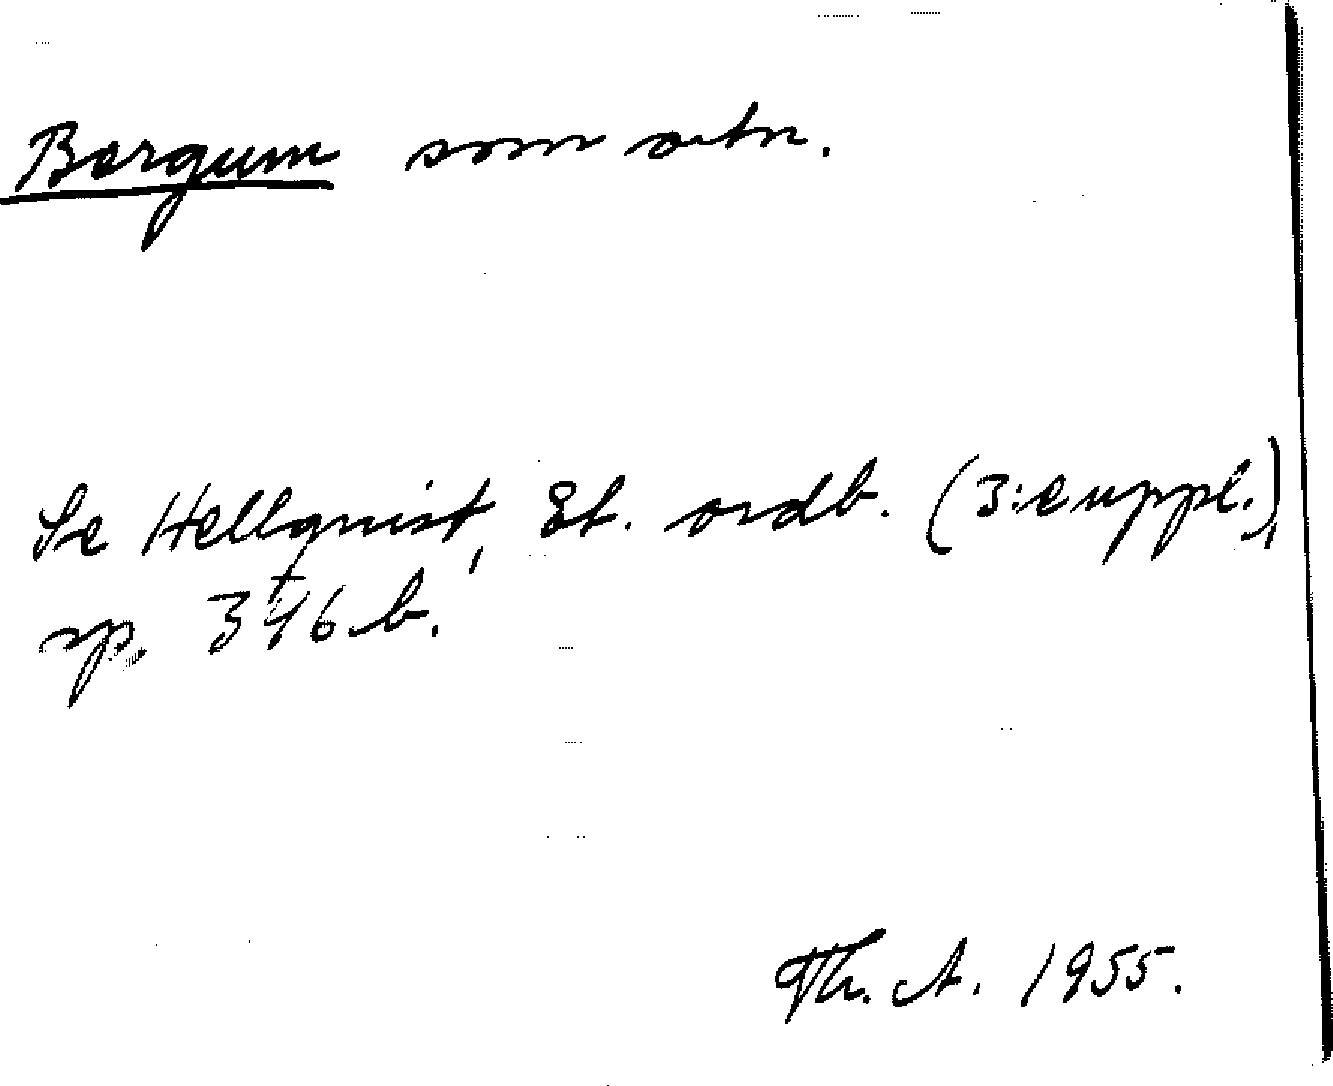 Bergum som ortn.
Se Hellquist, Et. ordb. (3:e uppl.),
sp. 396 b.
Th. A. 1955.